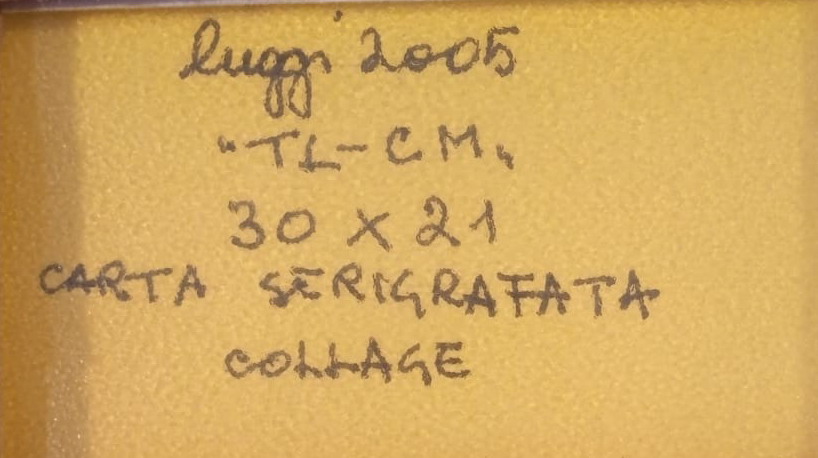 luggi 2005
"TL-CM"
30 x 21
CARTA SERIGRAFATA
COLLAGE